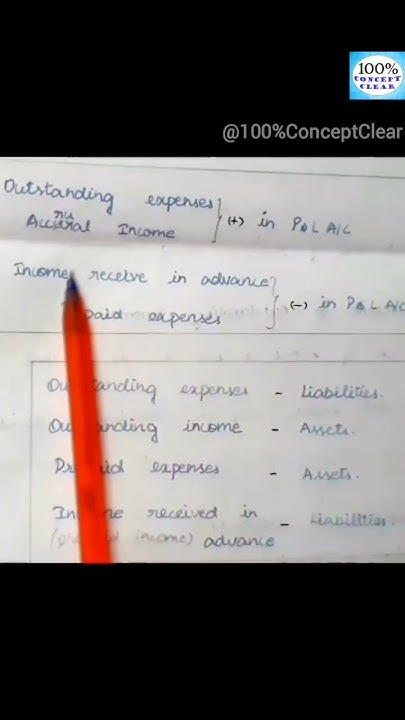 100%
CONCEPT
CLEAR
@100%ConceptClear
Outstanding expenses
Accrual Income
(+) in P&L A/C
Income receive in advance
paid expenses
(-) in P&L A/C
Outstanding expenses - Liabilities.
Outstanding income - Assets.
Prepaid expenses - Assets.
Income received in - Liabilities.
(prepaid income) advance